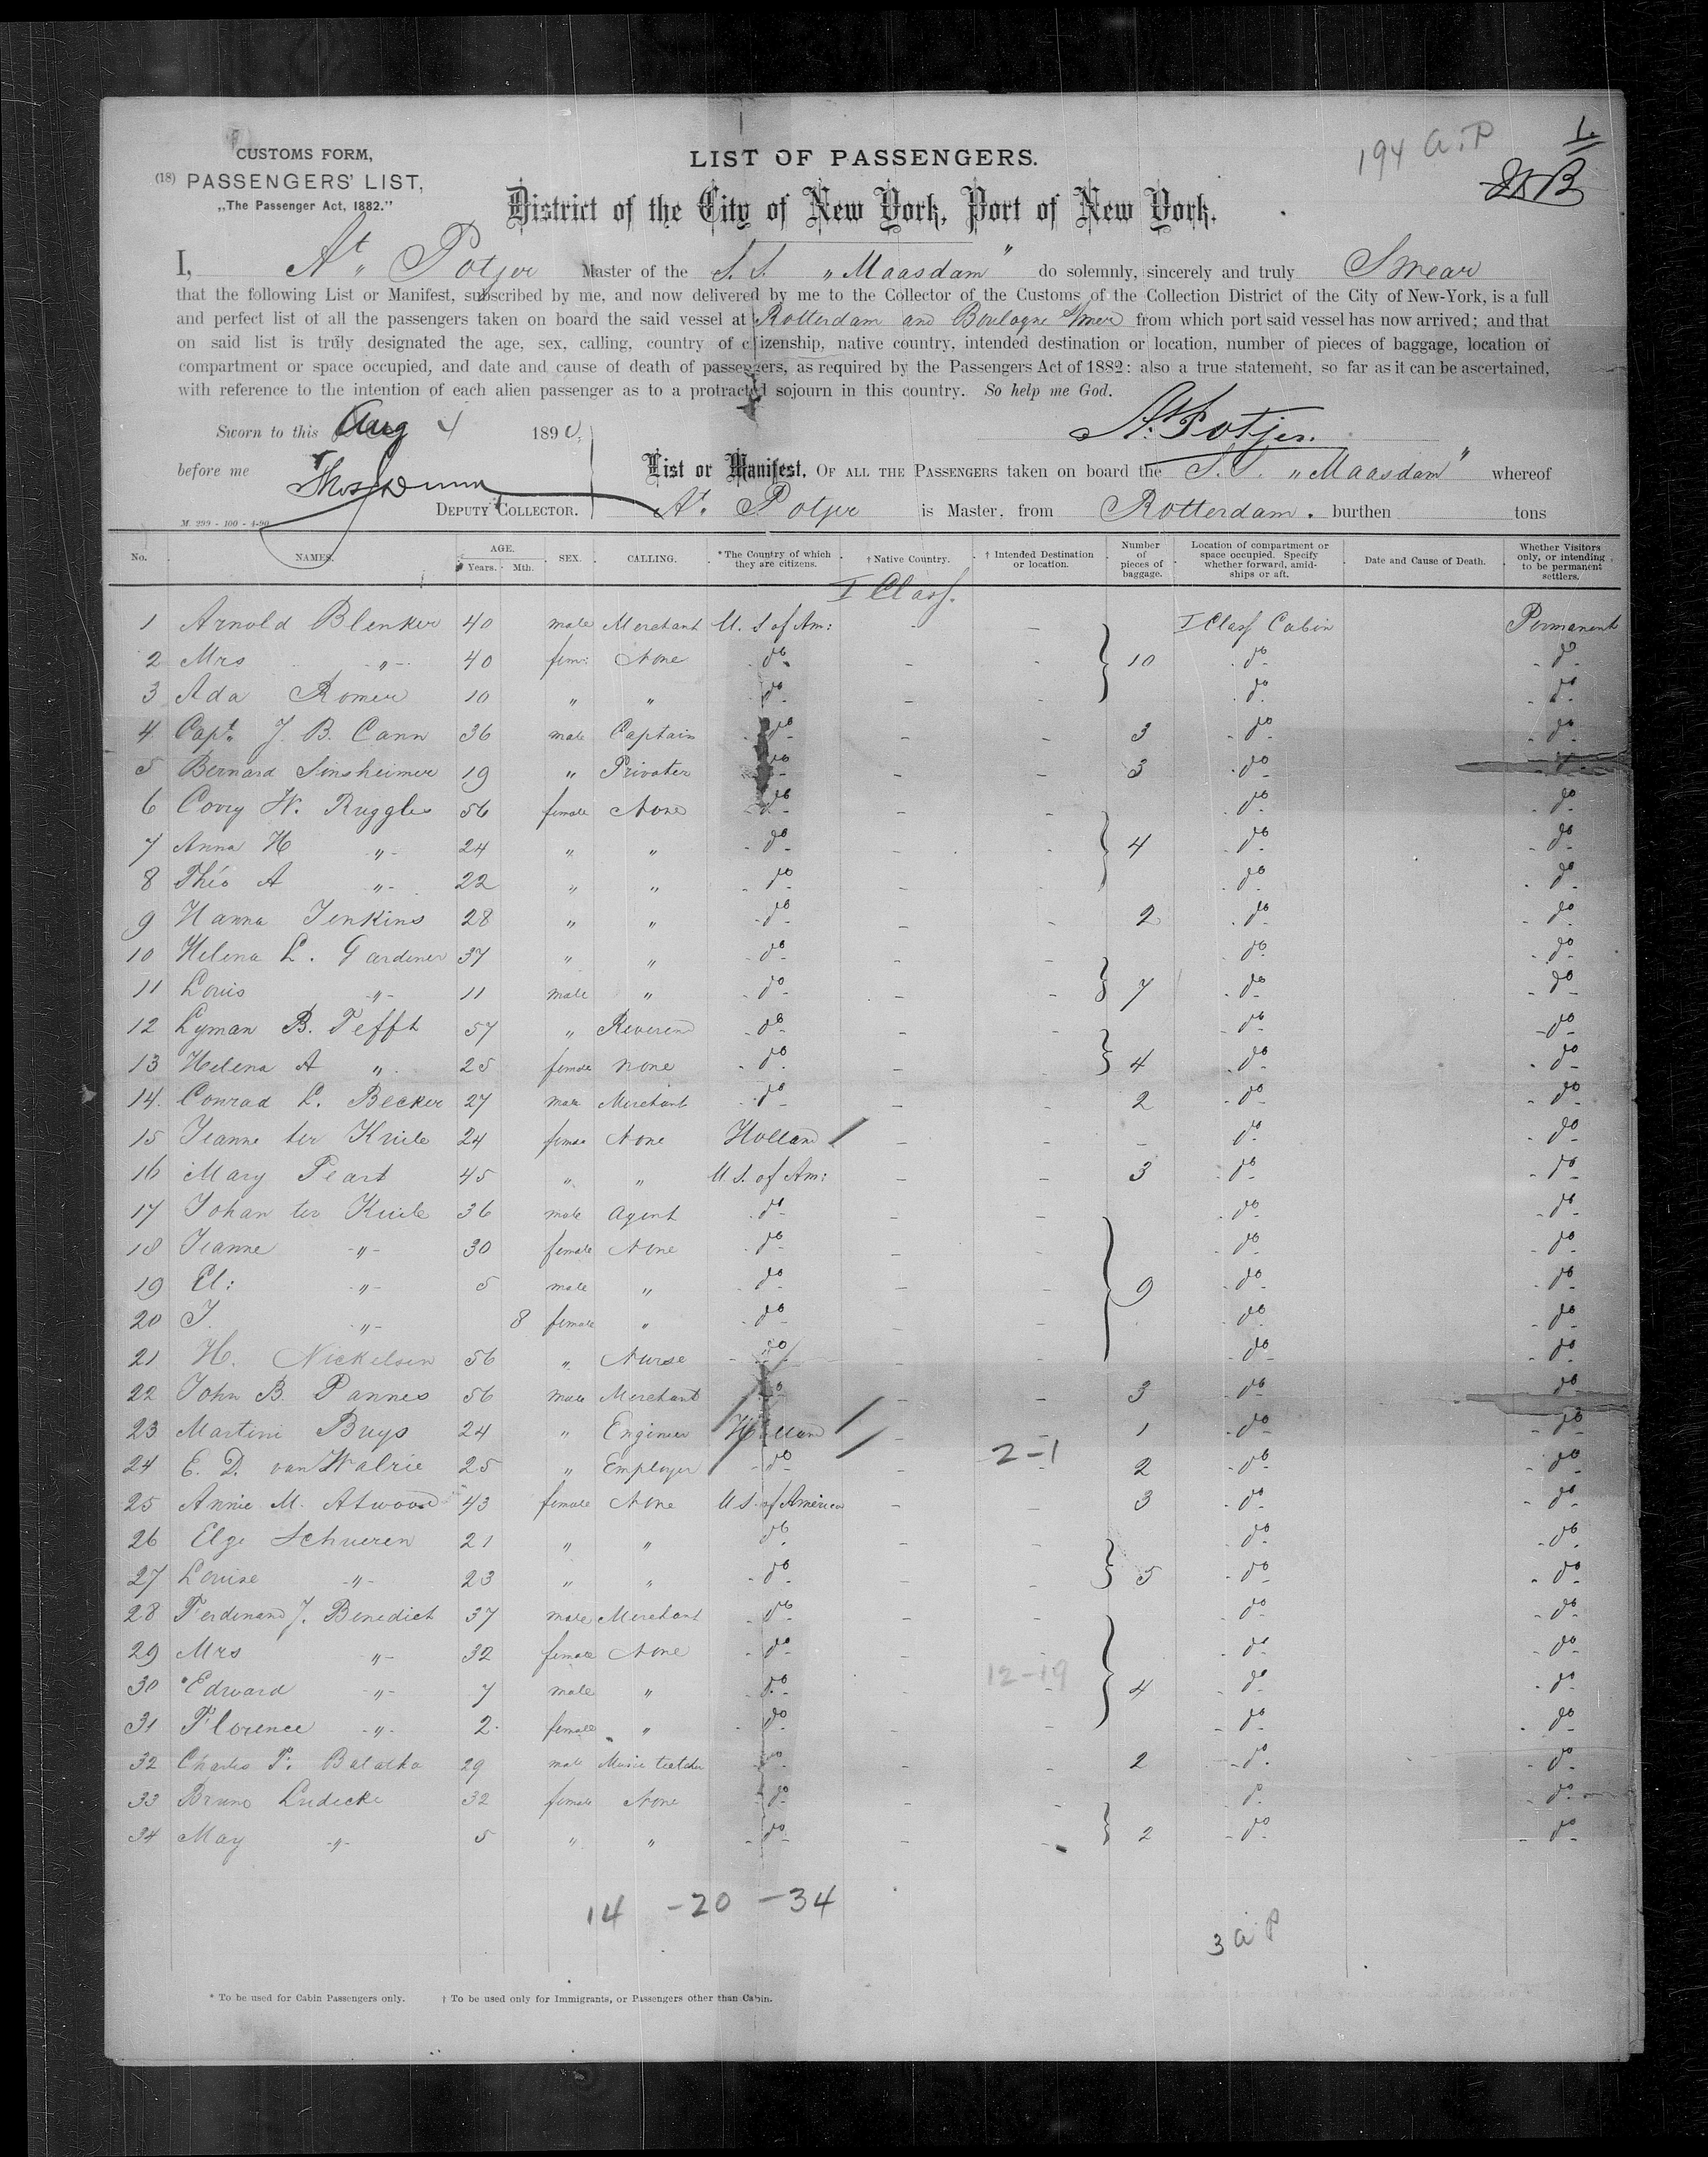 194 a.P
1.
CUSTOMS FORM,
(18) PASSENGERS' LIST,
„The Passenger Act, 1882."
LIST OF PASSENGERS.
District of the City of New York, Port of New York.
I, At Potjer Master of the S.S. „Maasdam" do solemnly, sincerely and truly Swear
that the following List or Manifest, subscribed by me, and now delivered by me to the Collector of the Customs of the Collection District of the City of New-York, is a full
and perfect list of all the passengers taken on board the said vessel at Rotterdam and Boulogne s/mer from which port said vessel has now arrived; and that
on said list is truly designated the age, sex, calling, country of citizenship, native country, intended destination or location, number of pieces of baggage, location of
compartment or space occupied, and date and cause of death of passengers, as required by the Passengers Act of 1882: also a true statement, so far as it can be ascertained,
with reference to the intention of each alien passenger as to a protracted sojourn in this country. So help me God.
Sworn to this Aug 4 1890,
At. Potjer.
before me
Thos Dunn
DEPUTY COLLECTOR.
List or Manifest, OF ALL THE PASSENGERS taken on board the S.S. „Maasdam" whereof
At. Potjer is Master, from Rotterdam. burthen tons
M. 299 - 100 - 4-90
No. NAMES. AGE. Years. Mth. SEX. CALLING. *The Country of which they are citizens. †Native Country. †Intended Destination or location. Number of pieces of baggage. Location of compartment or space occupied. Specify whether forward, amidships or aft. Date and Cause of Death. Whether Visitors only, or intending to be permanent settlers.
I Class.
1 Arnold Blenker 40 male Merchant U. S of Am: - - I Class Cabin Permanent
2 Mrs -"- 40 fem: None do - - 10 do do
3 Ada Romer 10 " " do - - do do
4 Capt. J. B. Cann 36 male Captain do - - 3 do do
5 Bernard Sinsheimer 19 " Privater do - - 3 do do
6 Corry W. Ruggles 56 female None do - - do do
7 Anna H -"- 24 " " do - - 4 do do
8 Théo A -"- 22 " " do - - do do
9 Hanna Jenkins 28 " " do - - 2 do do
10 Helena L. Gardener 37 " " do - - do do
11 Louis -"- 11 male " do - - 7 do do
12 Lyman B. Tefft 57 " Reverend do - - do do
13 Helena A " 25 female none do - - 4 do do
14. Conrad L. Becker 27 male Merchant do - - 2 do do
15 Jeanne ter Kuile 24 female None Holland - - - do do
16 Mary Peart 45 " " U S. of Am: - - 3 do do
17 Johan ter Kuile 36 male agent do - - do do
18 Jeanne -"- 30 female None do - - do do
19 El: -"- 5 male " do - - 9 do do
20 J. -"- 8 female " do - - do do
21 H. Nickelsen 56 " Nurse do - - do do
22 John B. Pannes 56 male Merchant do - - 3 do do
23 Martini Buys 24 " Engineer Holland - - 1 do do
24 E. D. van Walrie 25 " Employer do - 2-1 2 do do
25 Annie M. Atwood 43 female None U S. of America - - 3 do do
26 Elge Schueren 21 " " do - - do do
27 Louise -"- 23 " " do - - 5 do do
28 Ferdinand J. Benedict 37 male Merchant do - - do do
29 Mrs -"- 32 female None do - - do do
30 Edward -"- 7 male " do - 12-19 4 do do
31 Florence -"- 2 female " do - - do do
32 Charles P. Batatha 29 male Music teatcher do - - 2 do do
33 Bruno Ludecke 32 female None do - - do do
34 May -"- 5 " " do - - 2 do do
14 -20 -34
3 a P
* To be used for Cabin Passengers only. † To be used only for Immigrants, or Passengers other than Cabin.